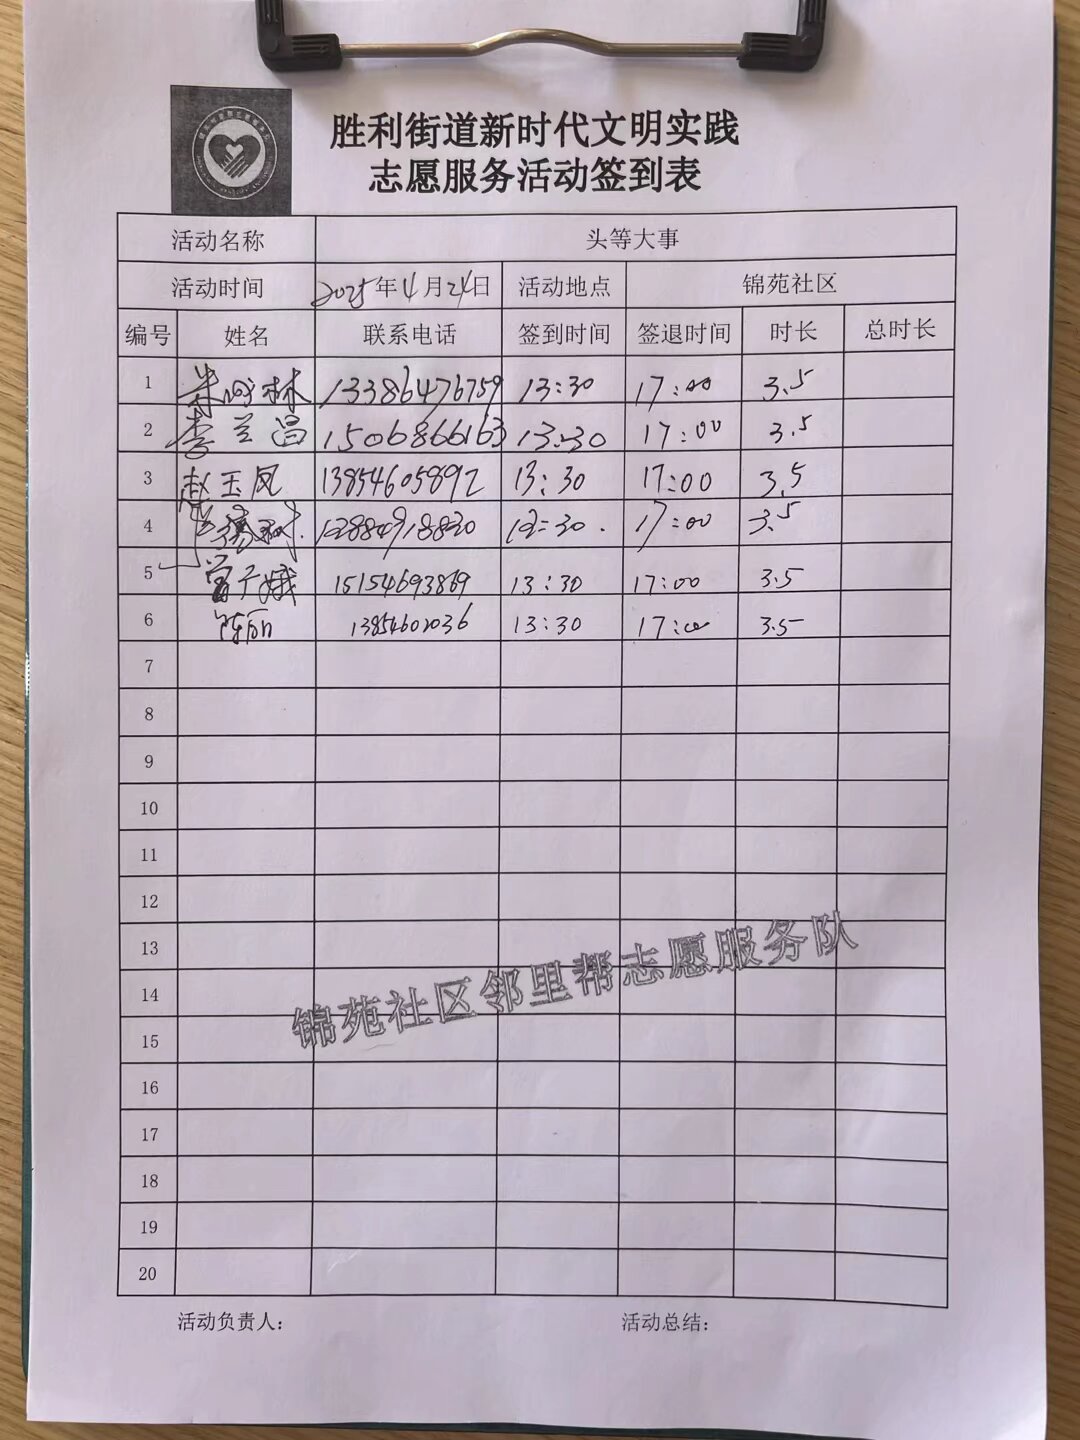 胜利街道新时代文明实践
志愿服务活动签到表
活动名称 头等大事
活动时间 2025年4月24日 活动地点 锦苑社区
编号 姓名 联系电话 签到时间 签退时间 时长 总时长
1 林 13386476759 13:30 17:00 3.5
2 李兰昌 1506866163 13:30 17:00 3.5
3 赵玉凤 13854605892 13:30 17:00 3.5
4 17:00 3.5
5 娥 15154693869 13:30 17:00 3.5
6 陈丽 13:30 17:00 3.5
7
8
9
10
11
12
13
14
15
16
17
18
19
20
锦苑社区邻里帮志愿服务队
活动负责人: 活动总结: